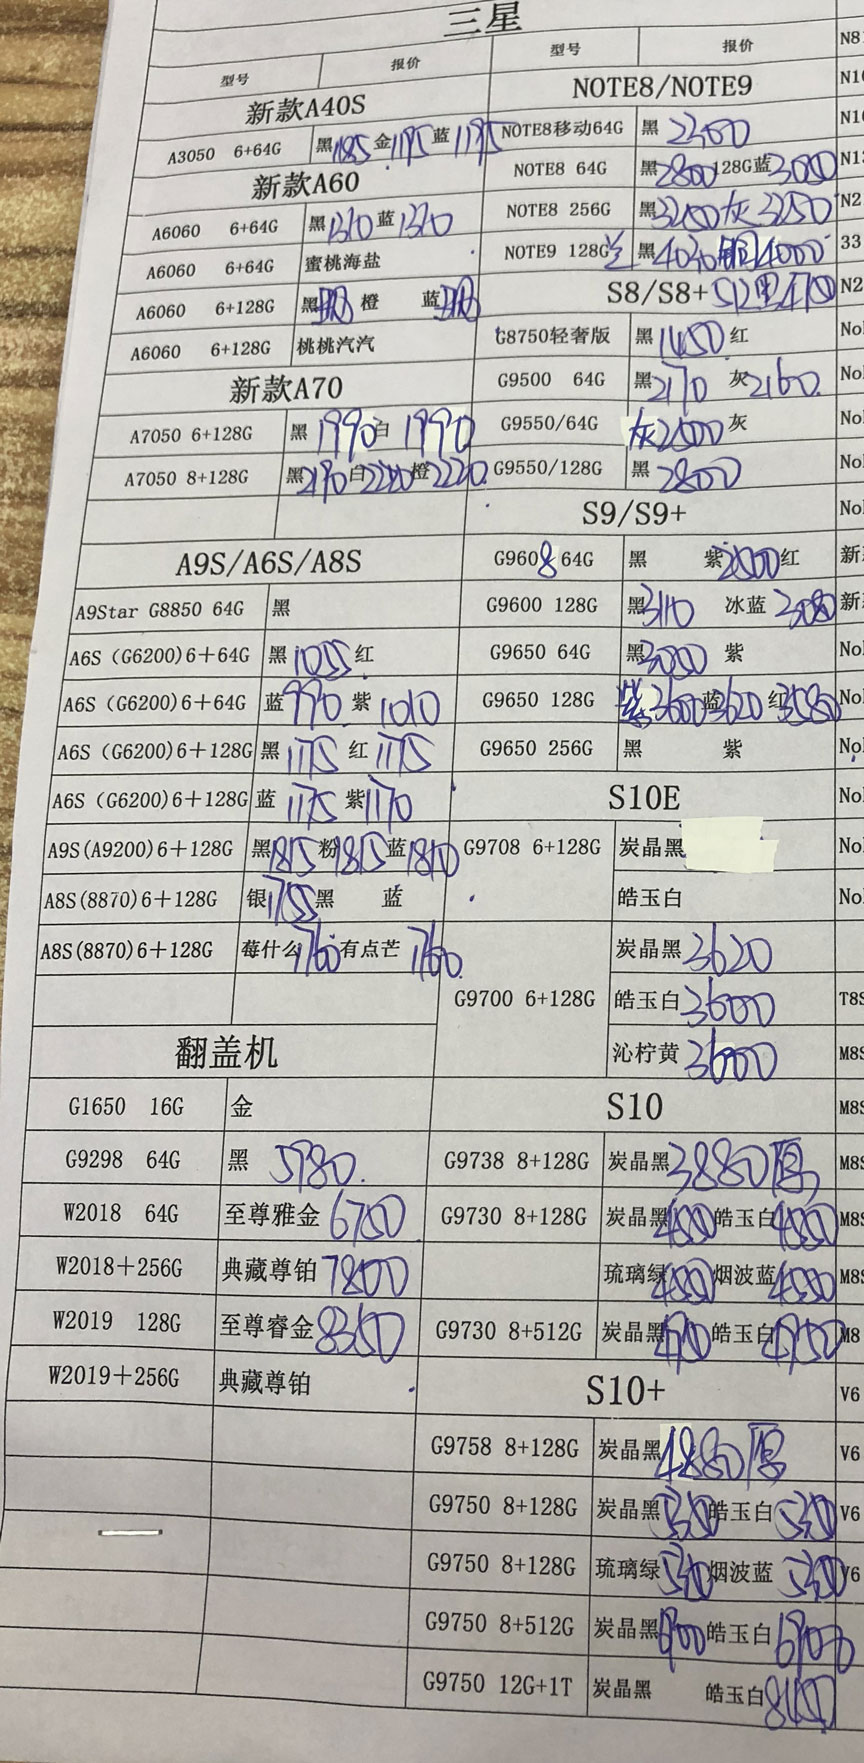 三星
型号 报价 型号 报价 N8
新款A40S NOTE8/NOTE9
A3050 6+64G 黑1185 金1195 蓝1195 NOTE8移动64G 黑 2300
新款A60 NOTE8 64G 黑2800 128G蓝3000
A6060 6+64G 黑1370 蓝1370 NOTE8 256G 黑3200灰3250 N2
A6060 6+64G 蜜桃海盐 NOTE9 128G 黑4030 铜4000 33
A6060 6+128G 黑 橙 蓝 S8/S8+ 512黑 N2
A6060 6+128G 桃桃汽汽 G8750轻奢版 黑1450红
新款A70 G9500 64G 黑2170 灰2160
A7050 6+128G 黑 1990白 1990 G9550/64G 灰2500灰
A7050 8+128G 黑2190白2220橙2220 G9550/128G 黑 2800
S9/S9+
A9S/A6S/A8S G9608 64G 黑 紫2800红
A9Star G8850 64G 黑 G9600 128G 黑3110 冰蓝 3080
A6S（G6200)6+64G 黑1055红 G9650 64G 黑3000 紫
A6S（G6200)6+64G 蓝990 紫1010 G9650 128G 紫3600蓝3620红3580
A6S（G6200)6+128G 黑1175 红1175 G9650 256G 黑 紫
A6S（G6200)6+128G 蓝 1175 紫1170 S10E
A9S(A9200)6+128G 黑1815粉1815蓝1810 G9708 6+128G 炭晶黑
A8S(8870)6+128G 银1755黑 蓝 皓玉白
A8S(8870)6+128G 莓什么1760有点芒1760 炭晶黑3620
G9700 6+128G 皓玉白3600 T8S
翻盖机 沁柠黄3600 M8S
G1650 16G 金 S10 M8S
G9298 64G 黑 5980 G9738 8+128G 炭晶黑3880 M8S
W2018 64G 至尊雅金6750 G9730 8+128G 炭晶黑 皓玉白 M8S
W2018+256G 典藏尊铂7800 琉璃绿 烟波蓝 M8S
W2019 128G 至尊睿金8350 G9730 8+512G 炭晶黑 皓玉白4950 M8
W2019+256G 典藏尊铂 S10+ V6
G9758 8+128G 炭晶黑4880 V6
G9750 8+128G 炭晶黑 皓玉白 V6
G9750 8+128G 琉璃绿 烟波蓝 V6
G9750 8+512G 炭晶黑6900皓玉白6900
G9750 12G+1T 炭晶黑 皓玉白